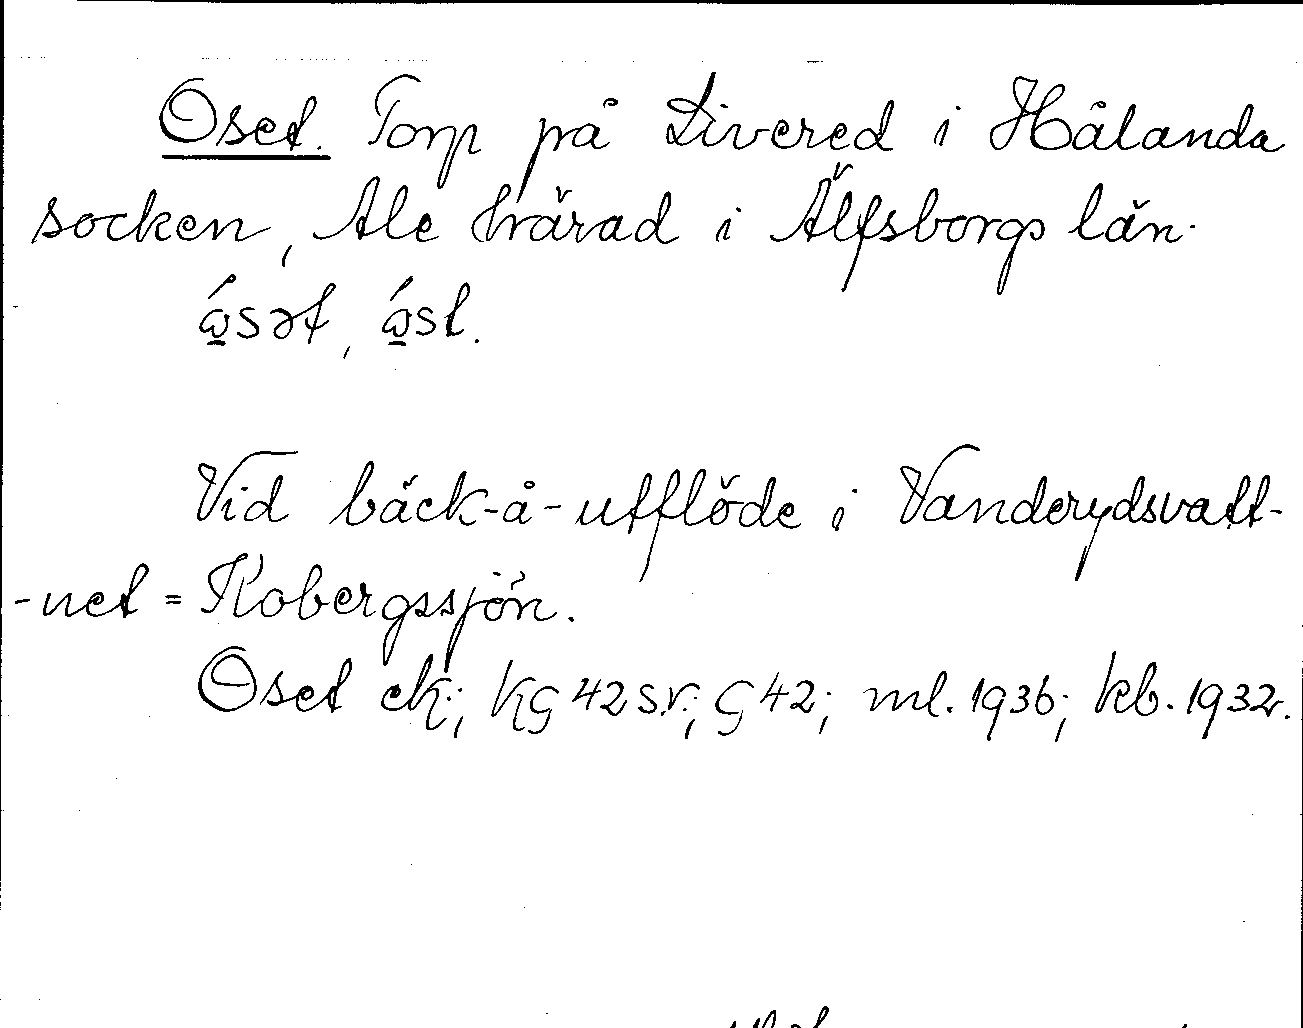 Oset. Torp på Livered i Hålanda
socken, Ale härad i Älfsborgs län.
ó̱sət, ó̱st.
Vid bäck-å-utflöde i Vanderydsvatt-
-net = Kobergssjön.
Oset ek; KG 42 sv; G 42; ml. 1936; kb. 1932.